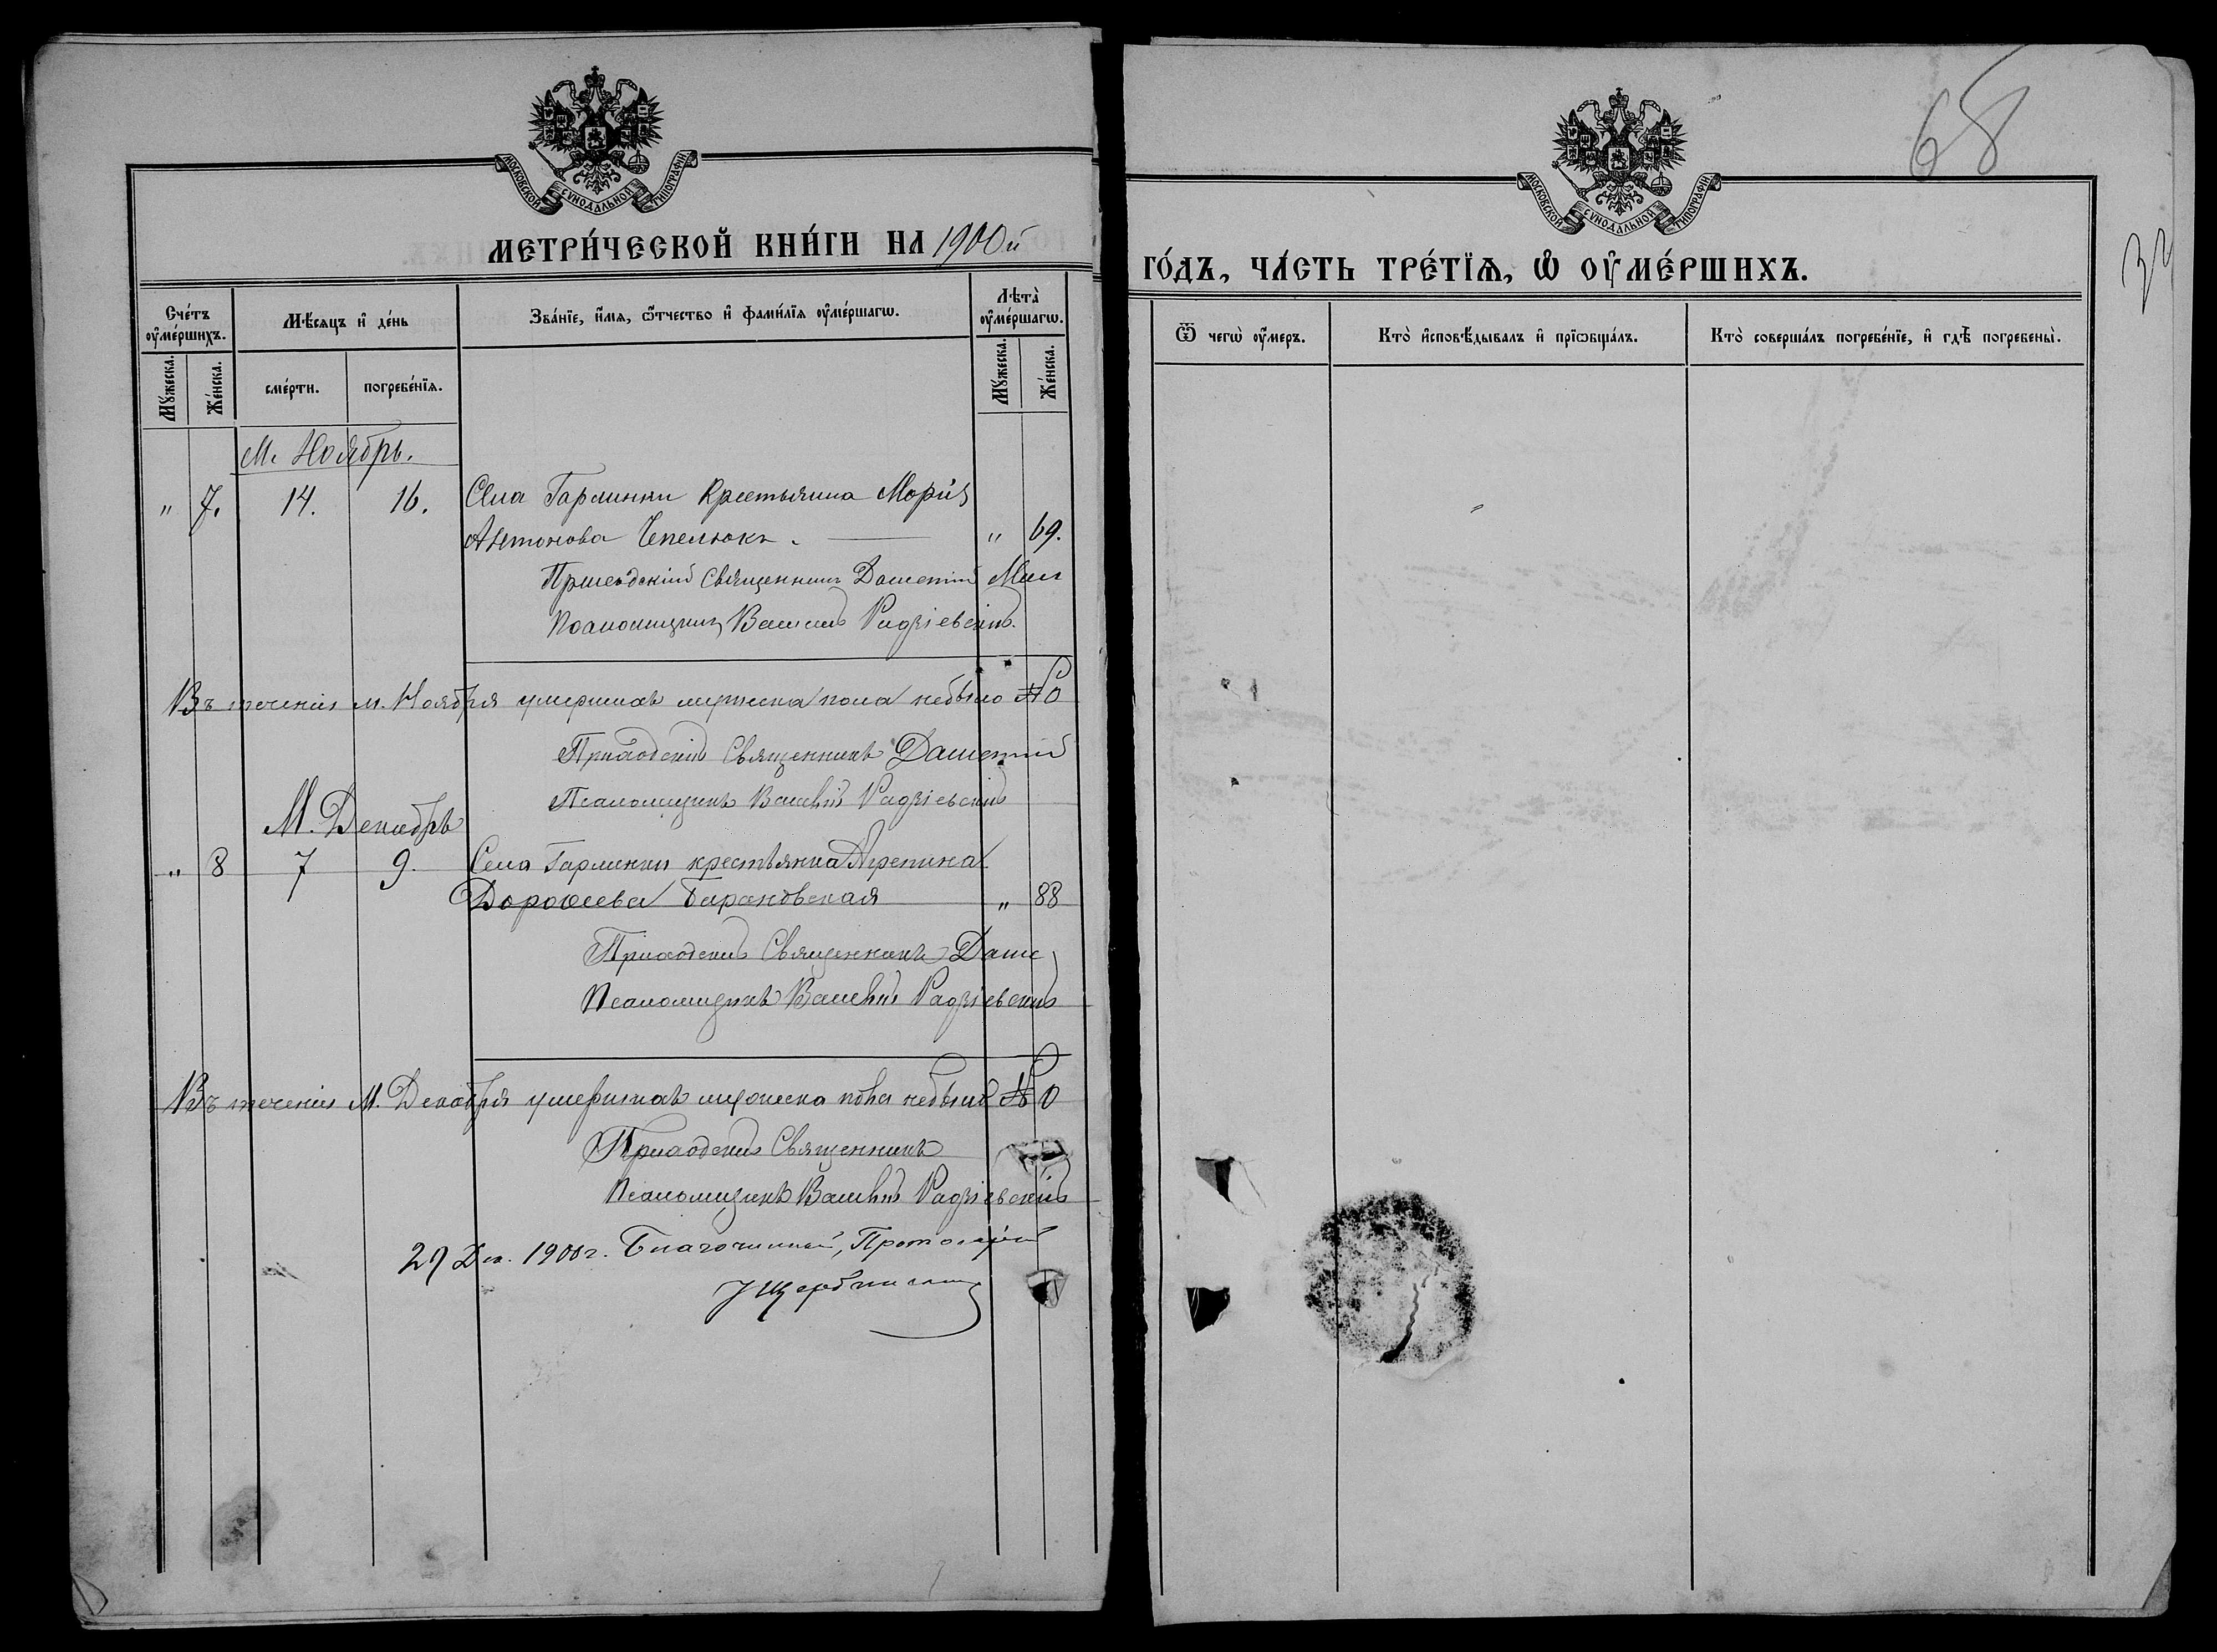 МОСКОВСКОЙ СѴНОДАЛЬНОЙ ТИПОГРАФІИ
МЕТРИ́ЧЕСКОЙ КНИ́ГИ НА 1900й
Сче́тъ ᲂу҆ме́ршихъ.
Мѣ́сѧцъ и҆ де́нь
Зва́нїе, и҆́мѧ, ѻ҆́тчество и҆ фами́лїѧ ᲂу҆ме́ршагѡ.
Лѣта̀ ᲂу҆ме́ршагѡ.
Мꙋ́жеска.
Же́нска.
сме́рти.
погребе́нїѧ.
Мꙋ́жеска.
Же́нска.
М. Ноябрь.
" 7. 14. 16. Села Гарлинки Крестьянка Марія
Антонова Чепелюкъ. " 69.
Приходскій Священникъ
Псаломщикъ Василій Радзіевскій.
Въ теченіи м. Ноября умершихъ мужеска пола небыло № 0
Приходскій Священникъ
Псаломщикъ Василій Радзіевскій
М. Декабрь
" 8 7 9. Села Гарлинки крестьянка Агрепина
Дороѳеева Барановская " 88
Приходскій Священникъ
Псаломщикъ Василій Радзіевскій
Въ теченіи М. Декабря умершихъ мужеска пола небыло № 0
Приходскій Священникъ
Псаломщикъ Василій Радзіевскій
29 Дек. 1900 г. Благочинный, Протоіерей
МОСКОВСКОЙ СѴНОДАЛЬНОЙ ТИПОГРАФІИ
68
ГО́ДЪ, ЧА́СТЬ ТРЕ́ТЇѦ, Ѽ ОУ҆МЕ́РШИХЪ.
Ѿ чегѡ̀ ᲂу҆́меръ.
Кто̀ и҆сповѣ́дывалъ и҆ прїѡбща́лъ.
Кто̀ соверша́лъ погребе́нїе, и҆ гдѣ̀ погребены̀.